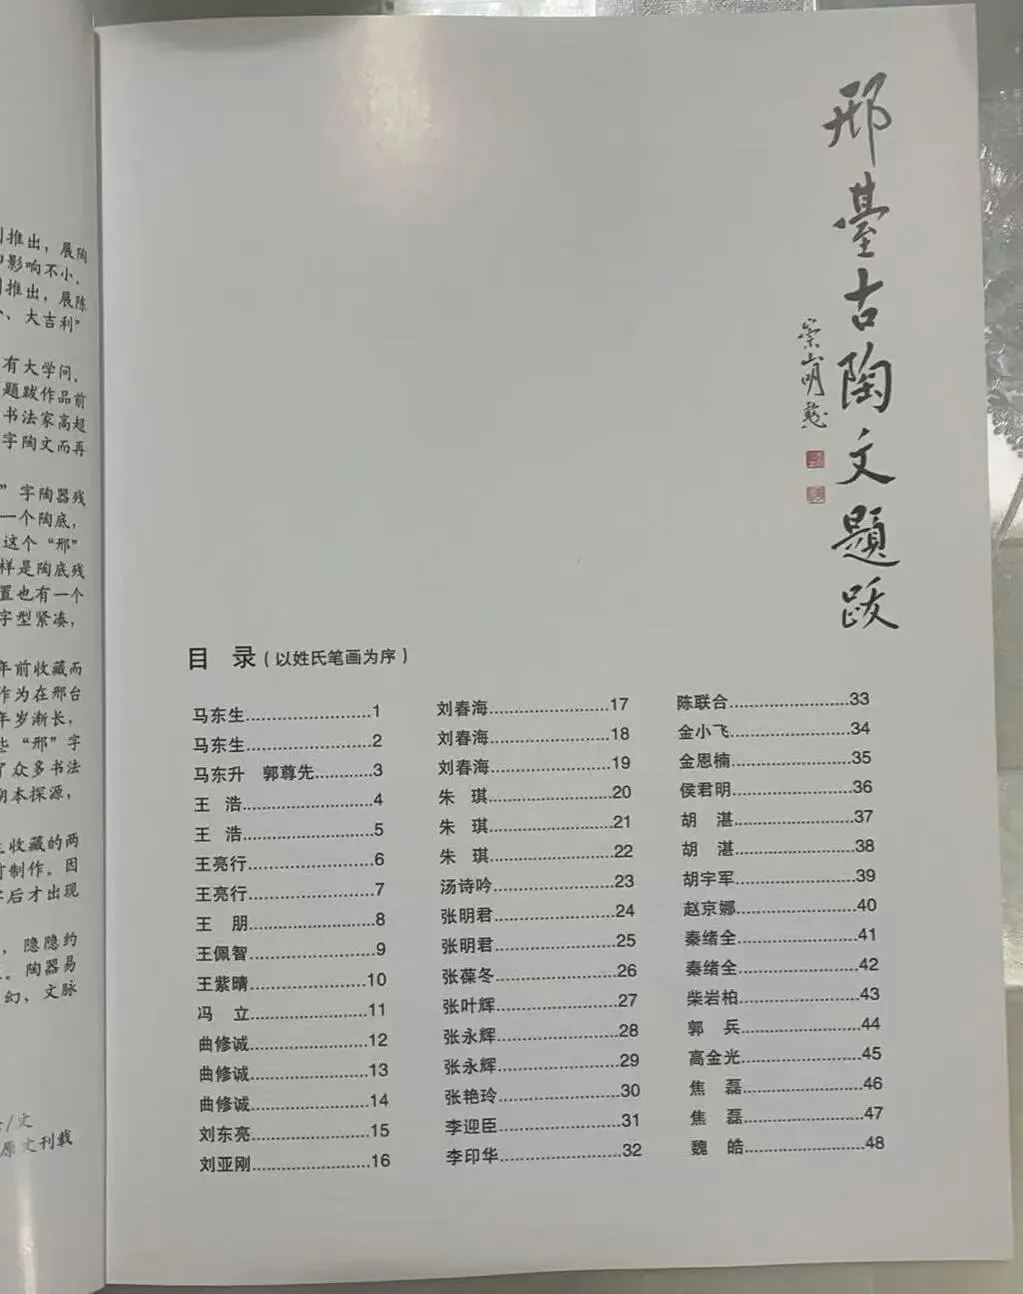 推出，展陶
影响不小，
推出，展陈
、大吉利”
有大学问，
题跋作品前
书法家高超
字陶文而再
” 字陶器残
一个陶底，
这个“邢”
样是陶底残
置也有一个
字型紧凑，
年前收藏而
作为在邢台
年岁渐长，
些“邢”字
了众多书法
朔本探源，
收藏的两
制作。因
后才出现
，隐隐约
。陶器易
幻，文脉
/文
原文刊载
邢臺古陶文題跋
崇山明愁
目 录（以姓氏笔画为序）
马东生……………………1
马东生……………………2
马东升 郭尊先…………3
王 浩……………………4
王 浩……………………5
王亮行……………………6
王亮行……………………7
王 朋……………………8
王佩智……………………9
王紫晴……………………10
冯 立……………………11
曲修诚……………………12
曲修诚……………………13
曲修诚……………………14
刘东亮……………………15
刘亚刚……………………16
刘春海……………………17
刘春海……………………18
刘春海……………………19
朱 琪……………………20
朱 琪……………………21
朱 琪……………………22
汤诗吟……………………23
张明君……………………24
张明君……………………25
张葆冬……………………26
张叶辉……………………27
张永辉……………………28
张永辉……………………29
张艳玲……………………30
李迎臣……………………31
李印华……………………32
陈联合……………………33
金小飞……………………34
金恩楠……………………35
侯君明……………………36
胡 湛……………………37
胡 湛……………………38
胡宇军……………………39
赵京娜……………………40
秦绪全……………………41
秦绪全……………………42
柴岩柏……………………43
郭 兵……………………44
高金光……………………45
焦 磊……………………46
焦 磊……………………47
魏 皓……………………48